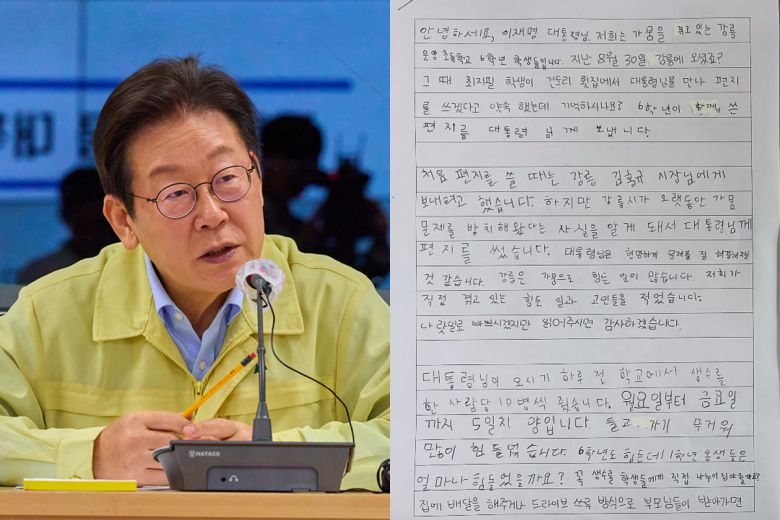 HAYACO
안녕하세요, 이재명 대통령님. 저희는 가뭄을 겪고 있는 강릉
운양 초등학교 6학년 학생들입니다. 지난 8월 30일 강릉에 오셨죠?
그 때 최지필 학생이 건도리 횟집에서 대통령님을 만나 편지
를 쓰겠다고 약속 했는데 기억하시나요? 6학년이 함께 쓴
편지를 대통령 님께 보냅니다.
처음 편지를 쓸 때는 강릉 김홍규 시장님에게
보내려고 했습니다. 하지만 강릉시가 오랫동안 가뭄
문제를 방치해왔다는 사실을 알게 돼서 대통령님께
편지를 썼습니다. 대통령님은 현명하게 문제를 잘 해결해주실
것 같습니다. 강릉은 가뭄으로 힘든 일이 많습니다. 저희가
직접 겪고 있는 힘든 일과 고민들을 적었습니다.
나랏일로 바쁘시겠지만 읽어주시면 감사하겠습니다.
대통령님이 오시기 하루 전 학교에서 생수를
한 사람당 10병씩 줬습니다. 월요일부터 금요일
까지 5일치 양입니다. 들고 가기 무거워
많이 힘들었습니다. 6학년도 힘든데 1학년 동생들은
얼마나 힘들었을까요? 꼭 생수를 학생들에게 직접 나누어줘야 할까요?
집에 배달을 해주거나 드라이브 쓰루 방식으로 부모님들이 받아가면